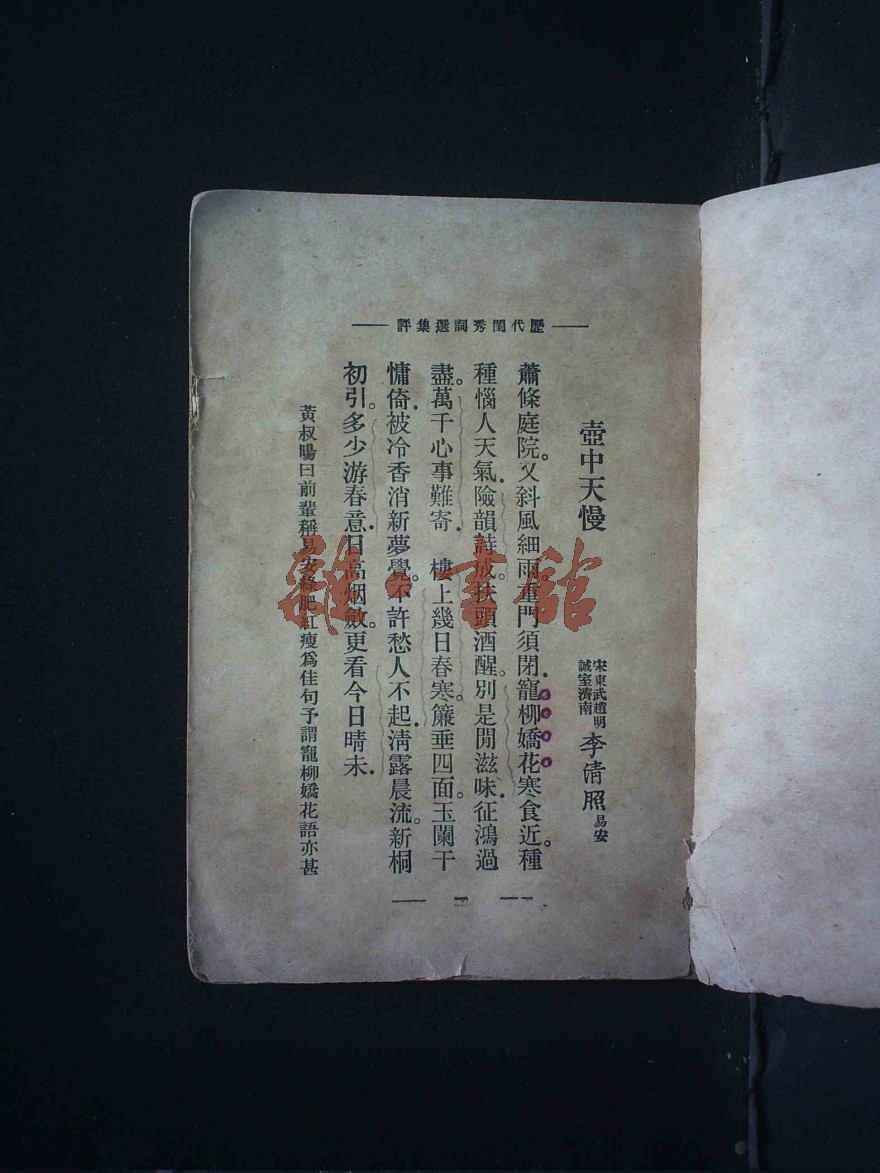 歷代閨秀詞選集評
壺中天慢
宋東武趙明
誠室濟南
李清照
易安
蕭條庭院。又斜風細雨重門須閉.寵柳嬌花寒食近。種
種惱人天氣.險韻詩成。扶頭酒醒。別是閒滋味.征鴻過
盡。萬千心事難寄.　樓上幾日春寒。簾垂四面。玉闌干
慵倚.被冷香消新夢覺。不許愁人不起.清露晨流。新桐
初引。多少游春意.日高烟斂。更看今日晴未.
黃叔暘曰前輩稱易安綠肥紅瘦爲佳句予謂寵柳嬌花語亦甚
雜·書館